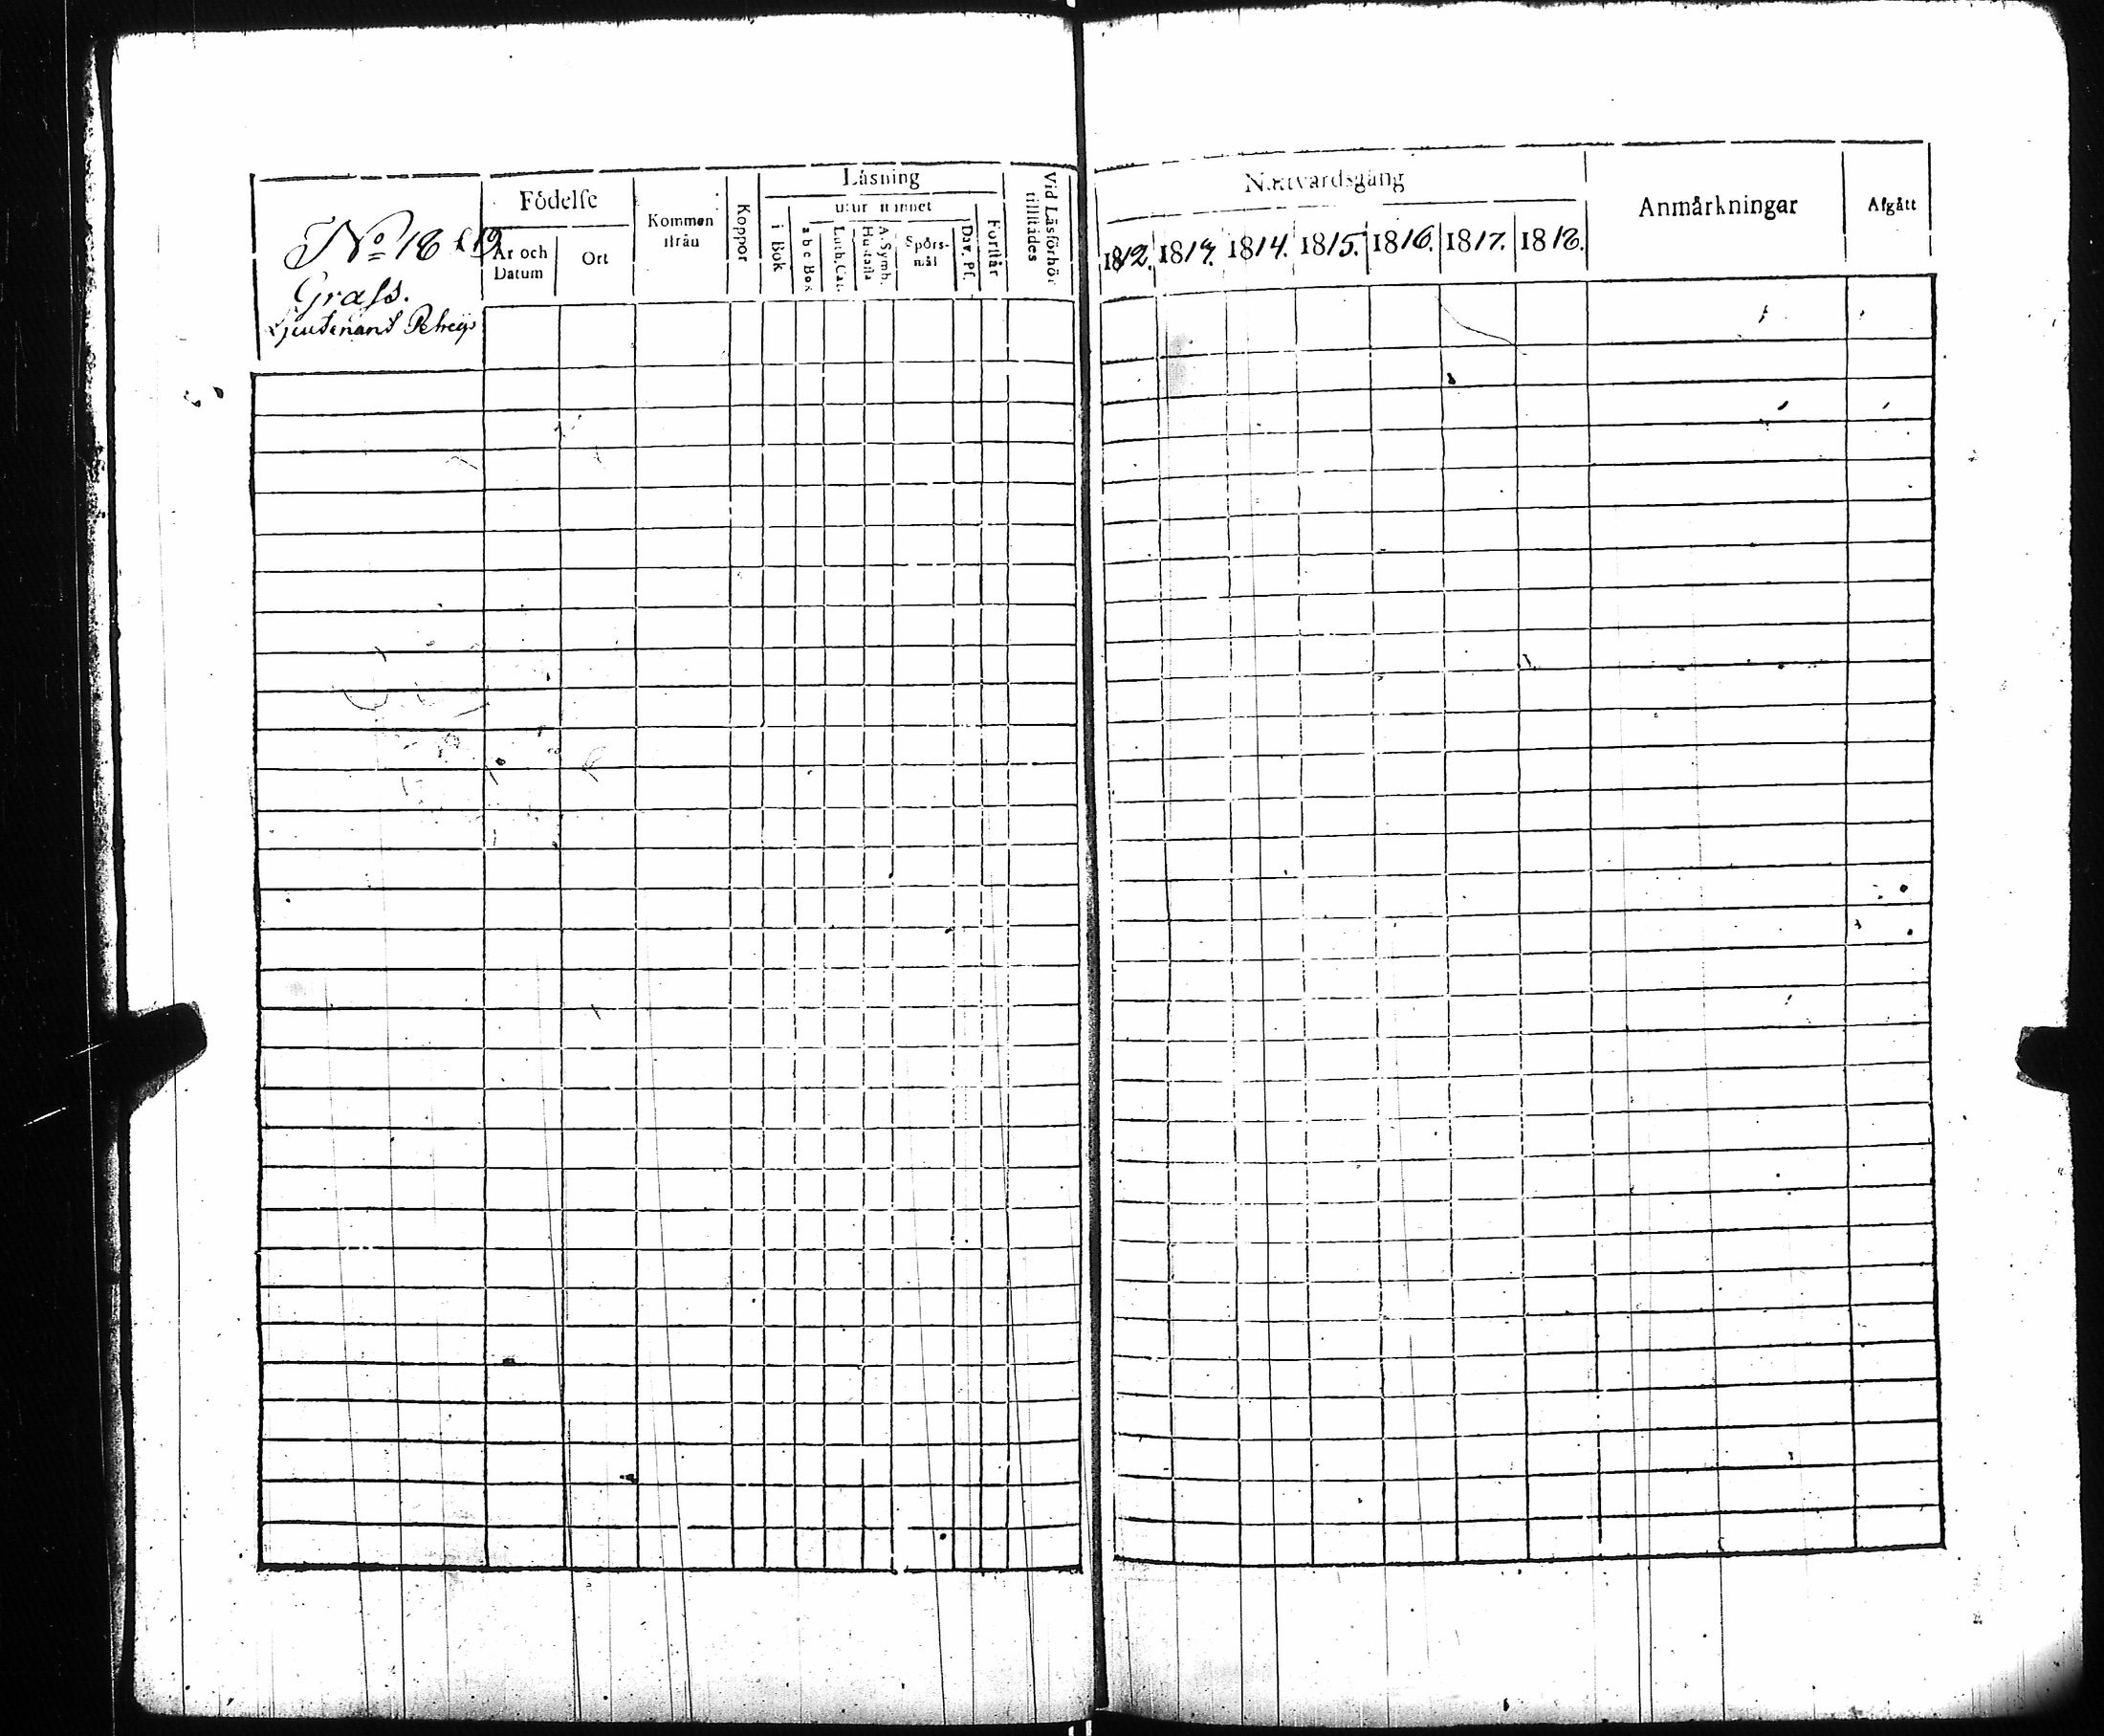 No 18 & 19
Grass.
Ljeutenant Petreijs
Födelse
År och Datum
Ort
Kommen ifrån
Koppor
Läsning
i Bok
utur minnet
a b c Bok
Luth. Cat.
Hustafla
A. Symb.
Spörsmål
Dav. Ps.
Förstår
Vid Läsförhör tillstädes
Nattvardsgång
1812. 1813. 1814. 1815. 1816. 1817. 1818.
Anmärkningar
Afgått